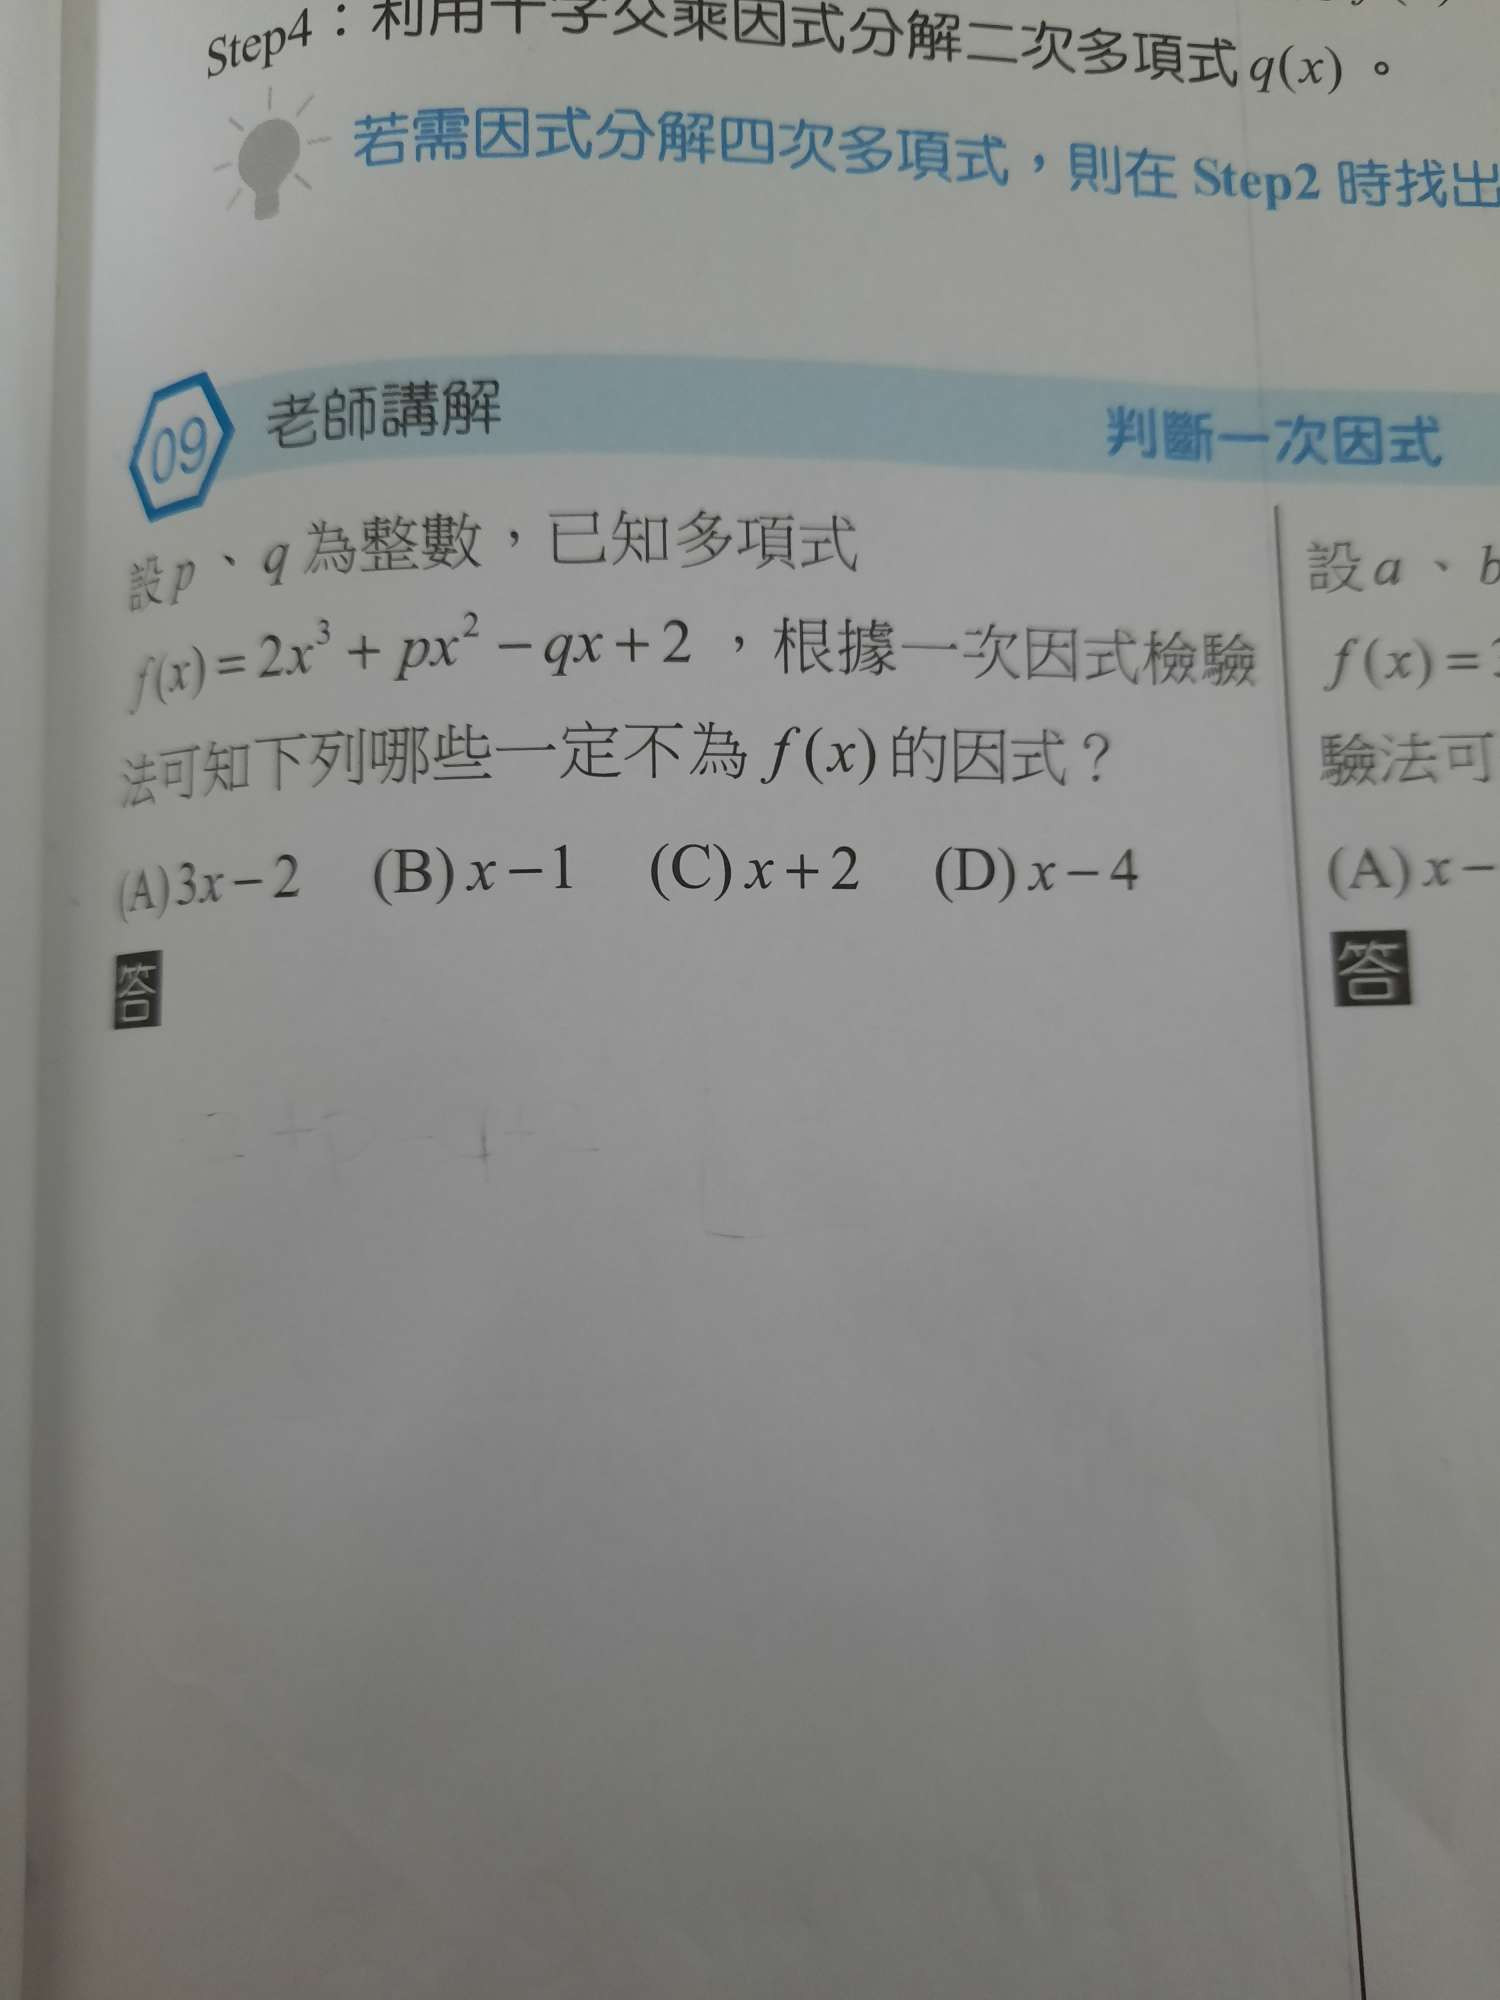 Step4：利用十字交乘因式分解二次多項式 q(x) 。
若需因式分解四次多項式，則在 Step2 時找出
09 老師講解 判斷一次因式
設 p 、 q 為整數，已知多項式
f(x) = 2x³ + px² − qx + 2 ，根據一次因式檢驗
法可知下列哪些一定不為 f(x) 的因式？
(A) 3x − 2 (B) x − 1 (C) x + 2 (D) x − 4
答
2+p-q+2
設 a 、 b
f(x) = 3
驗法可
(A) x −
答